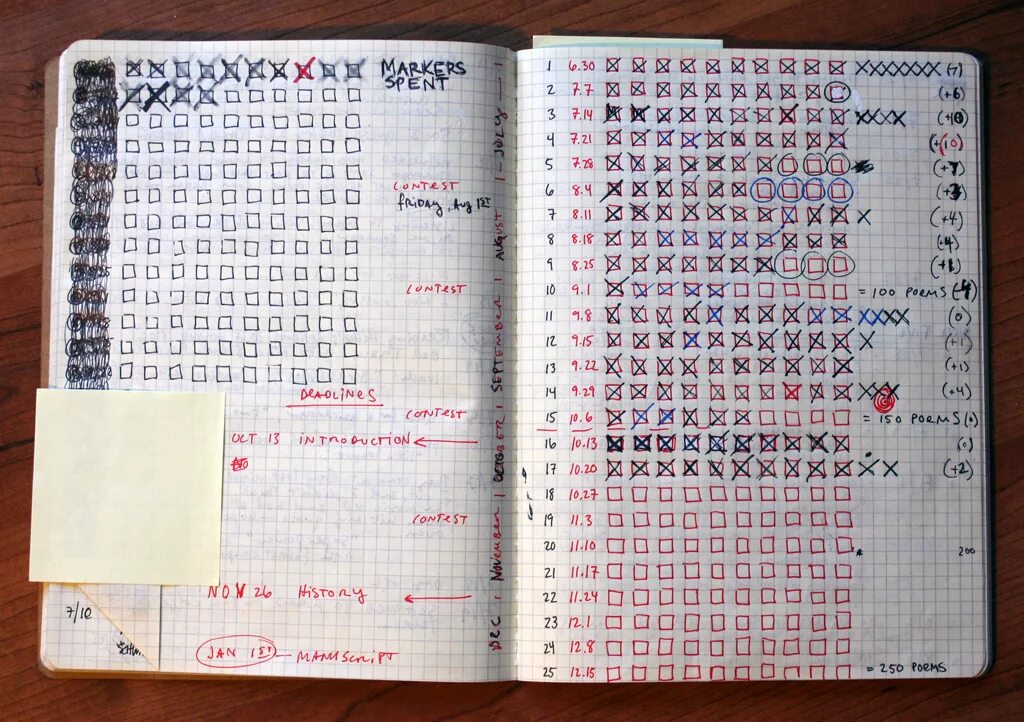 MARKERS
SPENT
CONTEST
FRIDAY, AUG 1ST
CONTEST
DEADLINES
CONTEST
OCT 13 INTRODUCTION
CONTEST
NOV 26 HISTORY
7/10
JAN 1ST — MANUSCRIPT
DEC | NOVEMBER | OCTOBER | SEPTEMBER | AUGUST | JULY
1 6.30 (7)
2 7.7 (+6)
3 7.14
4 7.21
5 7.28
6 8.4
7 8.11 (+4)
8 8.18 (+4)
9 8.25 (+1)
10 9.1 = 100 POEMS
11 9.8 (0)
12 9.15 (+1)
13 9.22 (+1)
14 9.29 (+4)
15 10.6 = 150 POEMS (0)
16 10.13 (0)
17 10.20 (+2)
18 10.27
19 11.3
20 11.10 200
21 11.17
22 11.24
23 12.1
24 12.8
25 12.15 = 250 POEMS